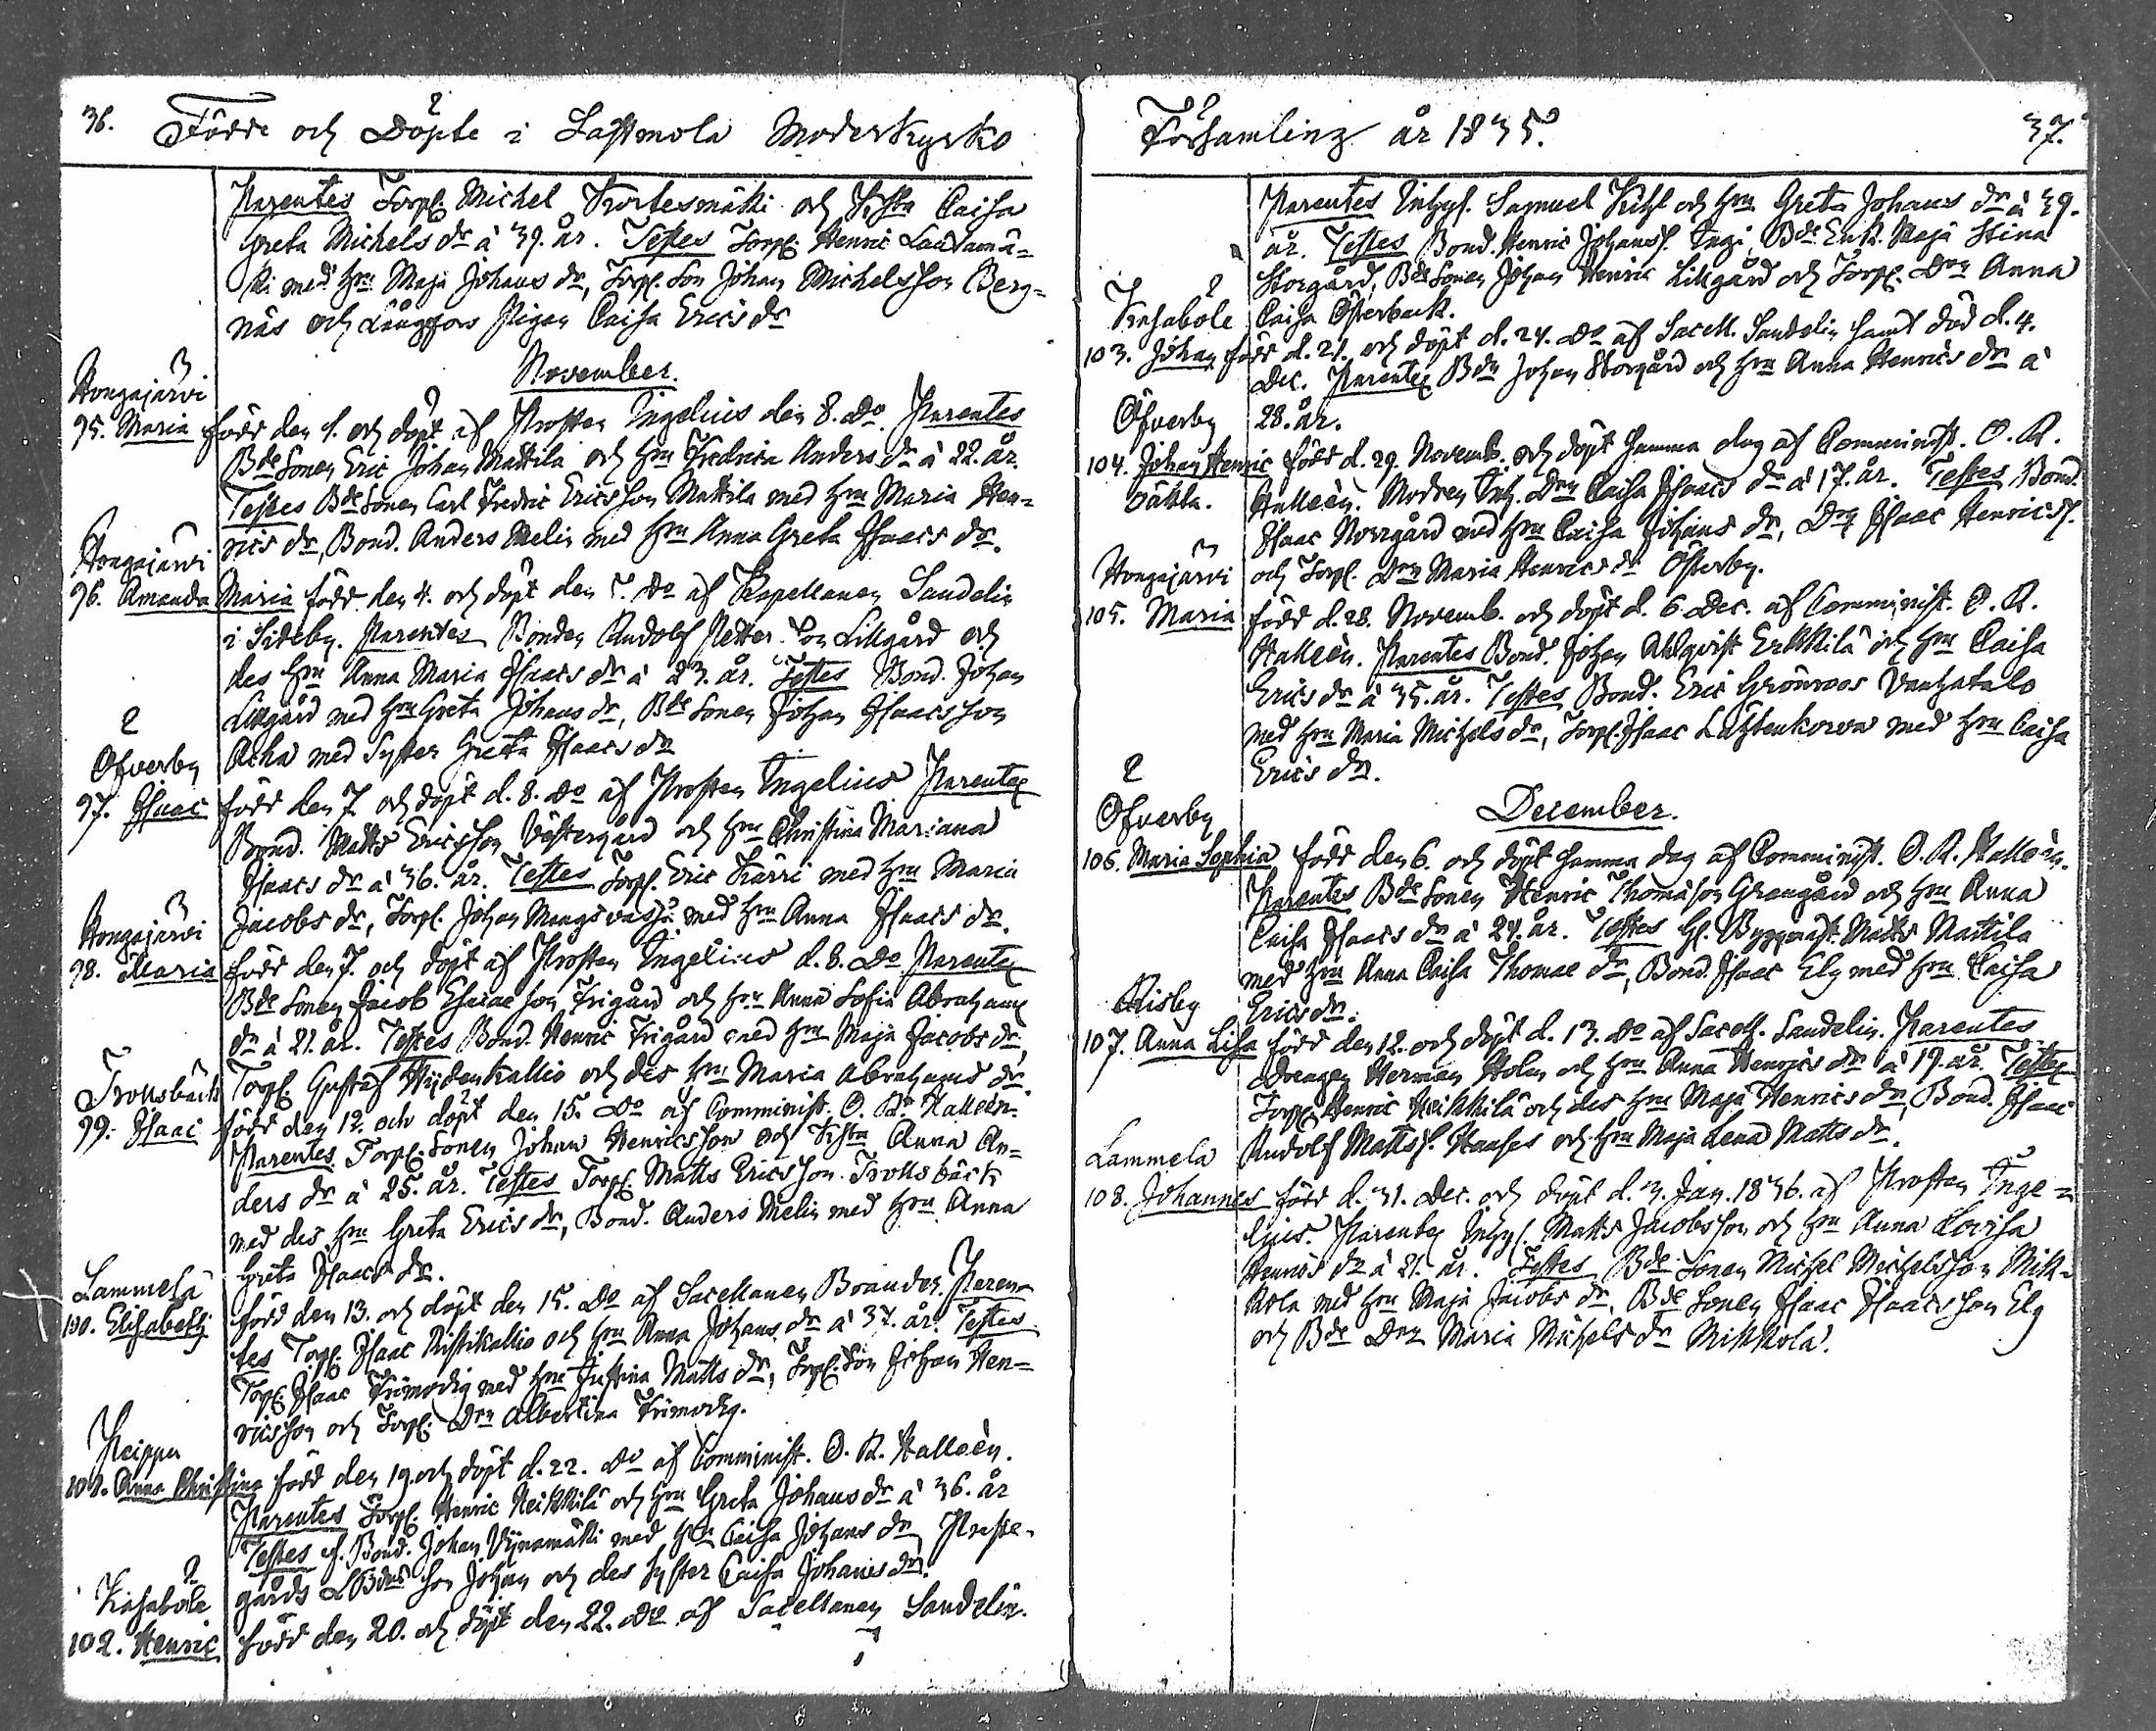 36. Födde och Döpte i Lappmola Moderkyrko
Parentes Torp. Michel Kortesmäki och Hstu Caisa
Greta Michels dr à 39. år. Testes Torp. Henric Laudamä=
ki med Hru Maja Johans dr, Torp. Son Johan Michelsson Berg=
näs och Långfors Pigan Caisa Ericsdr
November.
Hongajärvi
95. Maria född den 1. och döpt af Prosten Ingelius den 8. do Parentes
Bde Sonen Eric Johan Mattila och Hru Fredrica Anders dr à 22. år.
Testes Bde Sonen Carl Fredric Ericsson Mattila med Hru Maria Hen=
rics dr, Bond. Anders Melin med Hru Anna Greta Isaacs dr.
Hongajärvi
96. Amanda Maria född den 4. och döpt den 5. do af Kapellanen Sandelin
i Sideby. Parentes Bonden Rudolf Petter Son Lillgård och
des Hru Anna Maria Isaacs dr à 23. år. Testes Bond. Johan
Lillgård med Hru Greta Johans dr, Bde Sonen Johan Isaacsson
med Syster Greta Isaacs dr
Ofverby
97. Isaac född den 7. och döpt d. 8. do af Prosten Ingelius Parentes
Bond. Matts Ericsson Västergård och Hru Christina Mariana
Isaacs dr à 36. år. Testes Torp. Eric Kärri med Hru Maria
Jacobs dr, Torp. Johan Mangsvasjä med Hru Anna Isaacs dr.
Hongajärvi
98. Maria född den 7. och döpt af Prosten Ingelius d. 8. do Parentes
Bde Sonen Jacob Esaiae Son Frigård och Hru Anna Sofia Abrahams
dr à 21. år. Testes Bond. Henric Frigård med Hru Maja Jacobs dr,
Torp. Gustaf Hydenkallio och des Hru Maria Abrahams dr.
Trollsbäck
99. Isaac född den 12. och döpt den 15. do af Comminist. O. R. Halleèn.
Parentes Torp. Sonen Johan Henricsson och Hstu Anna An=
ders dr à 25. år. Testes Torp. Matts Ericsson Trollsbäck
med des Hru Greta Erics dr, Bond. Anders Melin med Hru Anna
Greta Isaacs dr.
Lammela
100. Elisabeth född den 13. och döpt den 15. do af Sacellanen Brander. Paren=
tes Torp. Isaac Ristikallio och Hru Anna Johans dr à 37. år. Testes
Torp. Isaac Frimodig med Hru Justina Matts dr, Torp. Son Johan Hen=
ricsson och Torp. Drn Albertina Frimodig.
Heippu
101. Anna Christina född den 19. och döpt d. 22. do af Comminist. O. R. Halleèn.
Parentes Torp. Henric Heikkilä och Hru Greta Johans dr à 36. år
Testes f. Bond. Johan Vijnamäki med Hru Caisa Johans dr, Preste=
gårds LBdes Son Johan och des Syster Caisa Johans dr.
Kasaböle
102. Henric född den 20. och döpt den 22. do af Sacellanen Sandelin.
Församling år 1835. 37.
Parentes Inhys. Samuel Kihl och Hru Greta Johans dr à 39.
år. Testes Bond. Henric Johanss. Ingi Bde Enk. Maja Stina
Storgård, Bde Sonen Johan Henric Lillgård och Torp. Drn Anna
Caisa Österback.
Kasaböle
103. Johan född d. 21. och döpt d. 24. do af Sacell. Sandelin samt död d. 4.
Dec. Parentes Bdn Johan Storgård och Hru Anna Henrics dr à
28. år.
Öfverby
104. Johan Henric född d. 29. Novemb. och döpt samma dag af Comminist. O. R.
oäkta. Halleèn. Modren Inh. Drn Caisa Isaacs dr à 17. år. Testes Bond.
Isaac Norrgård med Hru Caisa Johans dr, Drg Isaac Henrics.
och Torp. Drn Maria Henrics dr Österby.
Hongajärvi
105. Maria född d. 28. Novemb. och döpt d. 6. Dec. af Comminist. O. R.
Halleèn. Parentes Bond. Johan Ahlqvist Erkkilä och Hru Caisa
Erics dr à 35. år. Testes Bond. Eric Grönroos Vanhatalo
med Hru Maria Michels dr, Torp. Isaac Lähtenkorva med Hru Caisa
Erics dr.
December.
Ofverby
106. Maria Sophia född den 6. och döpt samma dag af Comminist. O. R. Halleèn.
Parentes Bde Sonen Henric Thomasson Grangård och Hru Anna
Caisa Isaacs dr à 24. år. Testes H. Byggmäst. Matts Mattila
med Hru Anna Caisa Thomae dr, Bond. Isaac Elg med Hru Caisa
Erics dr.
Risby
107. Anna Lisa född den 12. och döpt d. 13. do af Sacell. Sandelin. Parentes
Drengen Herman Holm och Hru Anna Henrics dr à 19. år. Testes
Torp. Henric Heikkilä och des Hru Maja Henrics dr, Bond. Isaac
Rudolf Mattss. Haases och Hru Maja Lena Matts dr.
Lammela
108. Johannes född d. 31. Dec. och döpt d. 3. Jan. 1836. af Prosten Inge=
lius. Parentes Inhys. Matts Jacobsson och Hru Anna Lovisa
Henrics dr à 21. år. Testes Bde Sonen Michel Michelsson Mik=
kola med Hru Maja Jacobs dr, Bde Sonen Isaac Isaacsson Elg
och Bde Drn Maria Michels dr Mikkola.